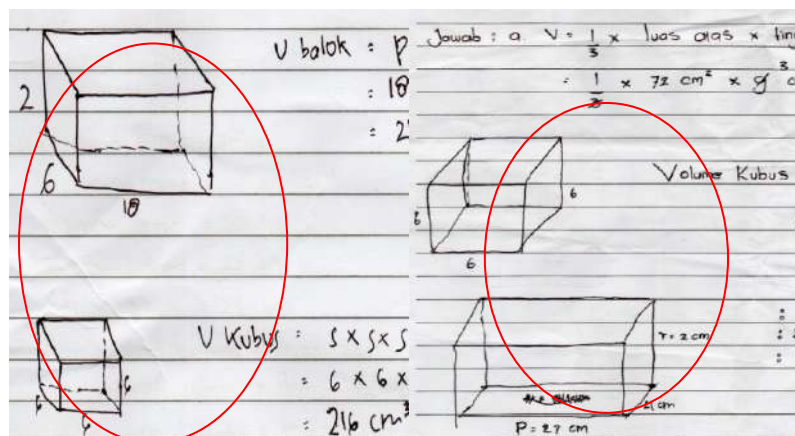 2
6
18
V balok : P
: 18
: 2
V Kubus : S x S x S
6
6
6
: 6 x 6 x
: 216 cm³
Jawab : a V = 1/3 x luas alas x ting
= 1/3 x 72 cm² x 9 3 c
Volume Kubus
6
6
6
:
:
:
r = 2 cm
4 cm
P = 27 cm